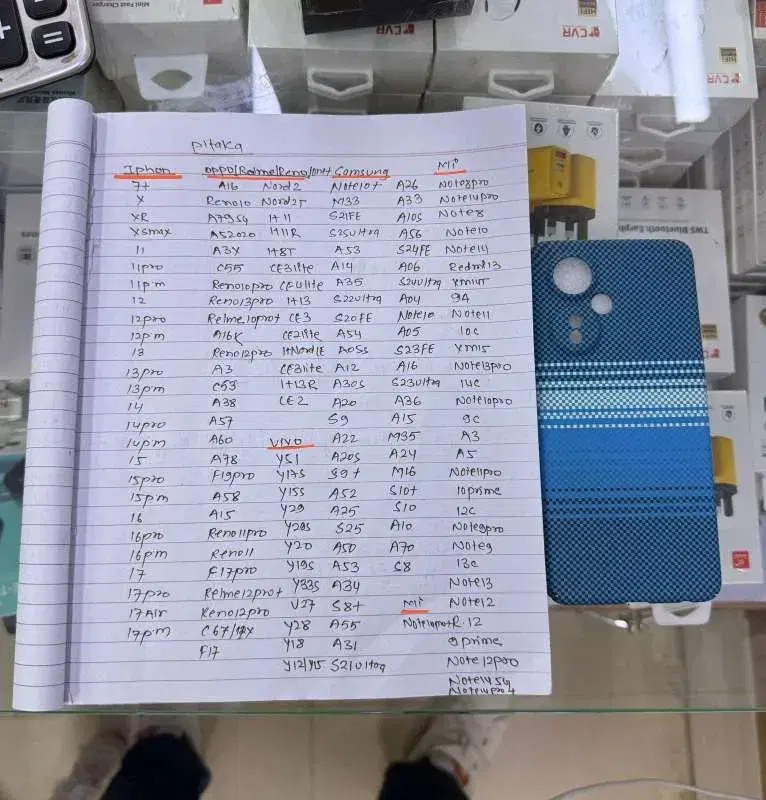 Mini Fast Charger
CVR
CVR
CVR
TWS Bluetooth Earph
pitaka
Iphon oppo/Relme/Reno/1+ Samsung Mi
7+ A16 Nord2 Note10+ A26 Note8pro
X Reno10 Nord2T M33 A33 Note14pro
XR A7954 1+11 S21FE A10S Note8
XSmax A52020 1+11R S25ultra A56 Note10
11 A3X 1+8T A53 S24FE Note14
11pro C55 CE3lite A14 A06 Redmi13
11pm Reno10pro CE4lite A35 S24ultra
12 Reno13pro 1+13 S22ultra A04 9A
12pro Relme10pro+ CE3 S20FE Note10 Note11
12pm A16K CE2lite A54 A05 10c
13 Reno12pro 1+Nord CE A05s S23FE
13pro A3 CE3lite A12 A16 Note13pro
13pm C53 1+13R A30s S23ultra 14c
14 A38 CE2 A20 A36 Note10pro
14pro A57 S9 A15 9c
14pm A60 VIVO A22 M35 A3
15 A78 Y51 A20s A24 A5
15pro F19pro Y17s S9+ M16 Note11pro
15pm A58 Y15s A52 S10+ 10prime
16 A15 Y29 A25 S10 12c
16pro Reno11pro Y20s S25 A10 Note9pro
16pm Reno11 Y20 A50 A70 Note9
17 F17pro Y19s A53 S8 13c
17pro Relme12pro+ Y33s A34 Note13
17Air Reno12pro V27 S8+ Mi Note12
17pm C67/ Y28 A55 R.12
F17 Y18 A31 9prime
Y12/Y15 S21ultra Note12pro
Note14 5g